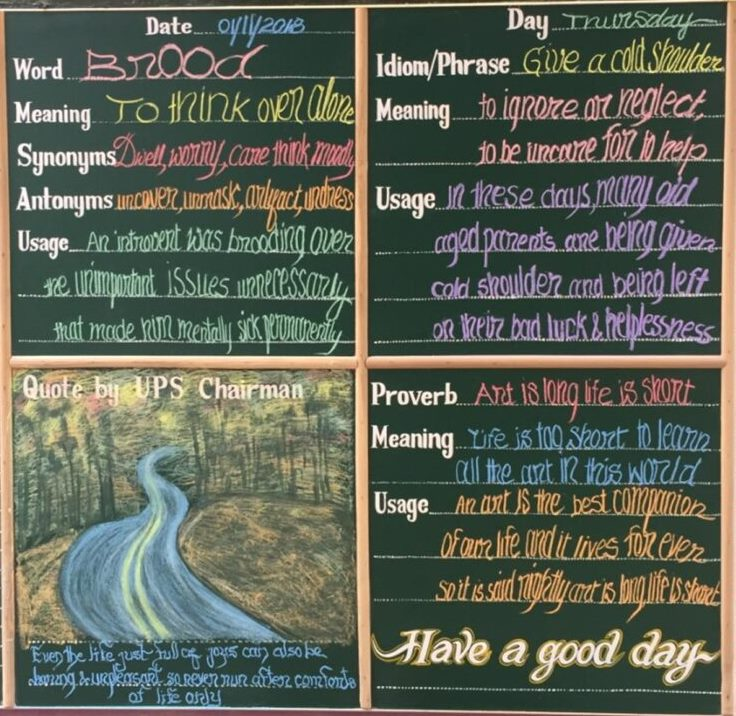 Date 01/11/2018
Word Brood
Meaning To think over alone
Synonyms Dwell, worry, care think moodly
Antonyms uncover, unmask,
Usage An introvert was brooding over
the unimportant issues unnecessarily
that made him mentally sick permanently
Day Thursday
Idiom/Phrase Give a cold shoulder
Meaning to ignore or neglect,
to be uncare for to help
Usage in these days, many old
aged parents are being given
cold shoulder and being left
on their bad luck & helplessness
Quote by UPS Chairman
Even the life just full of joys can also be
boring & unpleasant so never run after comforts
of life only
Proverb Art is long life is short
Meaning Life is too short to learn
all the art in this world
Usage An art is the best companion
of our life and it lives for ever
so it is said rightly art is long, life is short
Have a good day